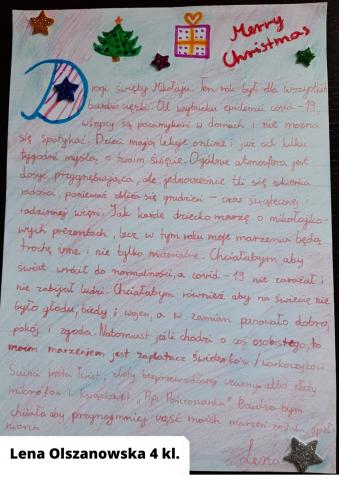 Merry
Christmas
Drogi święty Mikołaju. Ten rok był dla wszystkich
bardzo ciężki. Od wybuchu epidemii covid-19,
wszyscy są pozamykani w domach i nie można
się spotykać. Dzieci mają lekcje online i już od kilku
tygodni myślą, o twoim święcie. Ogólnie atmosfera jest
dosyć przygnębiająca, ale jednocześnie tli się iskierka
radości, ponieważ zbliża się grudzień – czas świątecznej i
rodzinnej więzi. Jak każde dziecko marzę o mikołajko-
wych prezentach, lecz w tym roku moje marzenia będą
trochę inne i nie tylko materialne. Chciałabym aby
świat wrócił do normalności, a covid-19 nie zarażał i
nie zabijał ludzi. Chciałabym również aby na świecie nie
było głodu, biedy i wojen, a w zamian panowało dobro,
pokój i zgoda. Natomiast jeśli chodzi o coś osobistego, to
moim marzeniem jest zaplatacz /warkoczyków
Insta złoty bezprzewodowy albo złoty
mikrofon i książka pt. „Pipi Pończoszanka". Bardzo bym
chciała aby przynajmniej część moich marzeń została speł-
niona.
Lena
Lena Olszanowska 4 kl.